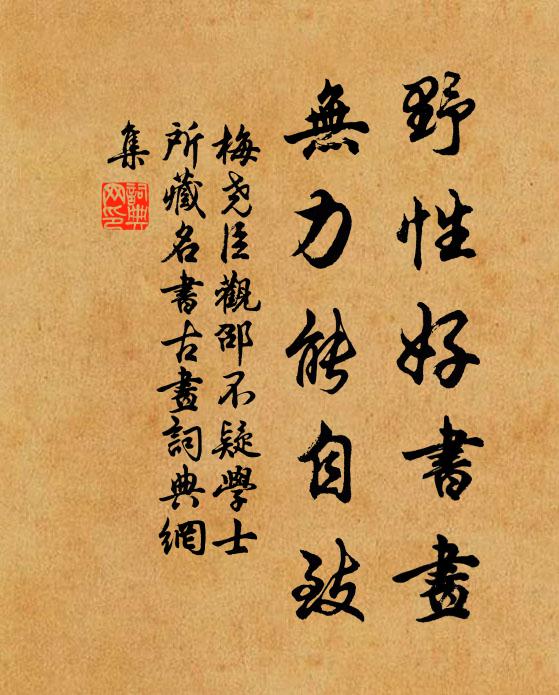 野性好書畫
無力能自致
梅尧臣觀邵不疑學士
所藏名書古畫詞典網
集
詞典
网印